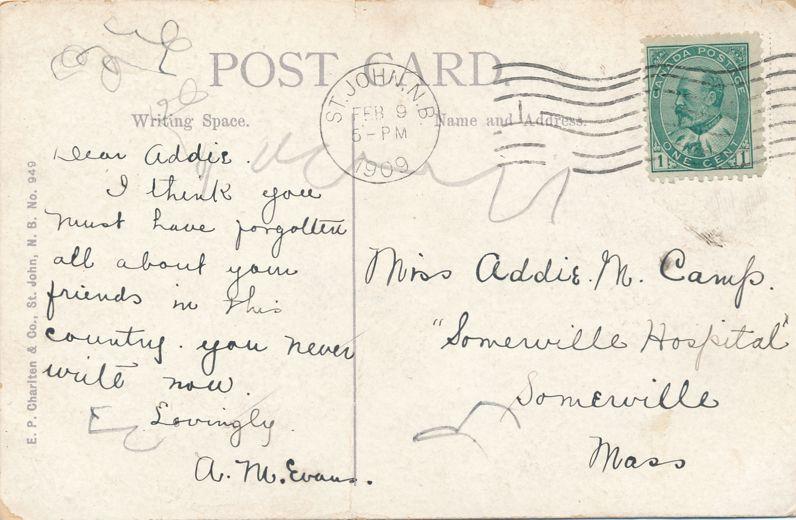 POST CARD.
Writing Space.
Name and Address.
ST. JOHN, N.B.
FEB 9
5-PM
1909
CANADA POSTAGE
1 ONE CENT 1
E. P. Charlton & Co., St. John, N. B. No. 949
Dear Addie.
I think you
must have forgotten
all about your
friends in this
country. you never
write now.
Lovingly
A. M. Evans.
Miss Addie. M. Camp.
"Somerville Hospital"
Somerville
Mass